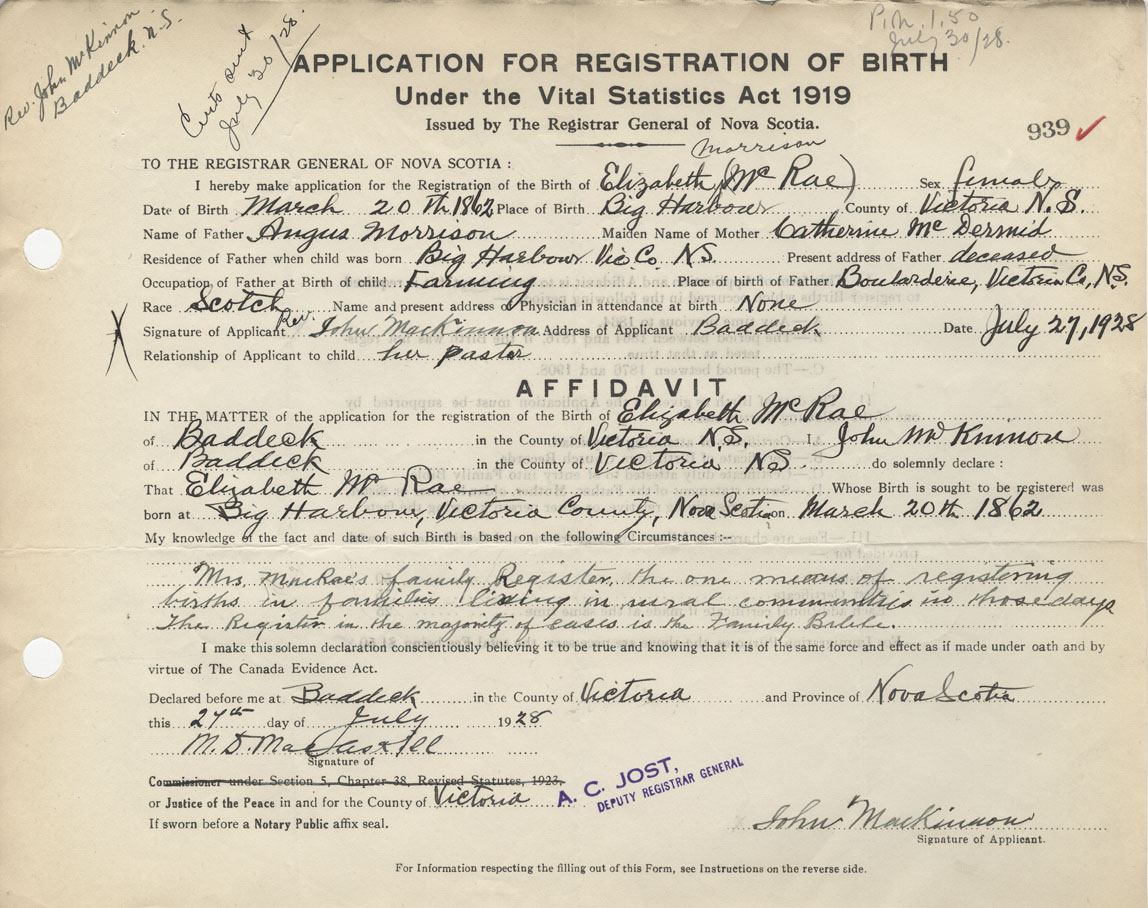 Rev. John McKinnon
Baddeck. N.S.
Certs sent
July 30/28.
P.N. 1.50
July 30/28.
APPLICATION FOR REGISTRATION OF BIRTH
Under the Vital Statistics Act 1919
Issued by The Registrar General of Nova Scotia.
939 ✓
Morrison
TO THE REGISTRAR GENERAL OF NOVA SCOTIA :
I hereby make application for the Registration of the Birth of Elizabeth (Mc Rae) Sex female
Date of Birth March 20th 1862 Place of Birth Big Harbour County of Victoria N.S.
Name of Father Angus Morrison Maiden Name of Mother Catherine McDermid
Residence of Father when child was born Big Harbour Vic Co. N.S. Present address of Father deceased
Occupation of Father at Birth of child Farming Place of birth of Father Boularderie, Victoria Co, N.S.
Race Scotch Name and present address of Physician in attendance at birth None
Signature of Applicant Rev. John MacKinnon Address of Applicant Baddeck Date July 27, 1928
Relationship of Applicant to child her pastor
AFFIDAVIT
IN THE MATTER of the application for the registration of the Birth of Elizabeth McRae
of Baddeck in the County of Victoria N.S. I, John McKinnon
of Baddeck in the County of Victoria NS do solemnly declare :
That Elizabeth Mc Rae Whose Birth is sought to be registered was
born at Big Harbour, Victoria County, Nova Scotia on March 20th 1862
My knowledge of the fact and date of such Birth is based on the following Circumstances :--
Mrs. MacRae's family Register, the one means of registering
births in families living in rural communities in those days
The Register in the majority of cases is the Family Bible.
I make this solemn declaration conscientiously believing it to be true and knowing that it is of the same force and effect as if made under oath and by
virtue of The Canada Evidence Act.
Declared before me at Baddeck in the County of Victoria and Province of Nova Scotia
this 27th day of July 1928
M. D. MacCaskill
Signature of
Commissioner under Section 5, Chapter 38, Revised Statutes, 1923,
or Justice of the Peace in and for the County of Victoria
A. C. JOST,
DEPUTY REGISTRAR GENERAL
If sworn before a Notary Public affix seal.
John MacKinnon
Signature of Applicant.
For Information respecting the filling out of this Form, see Instructions on the reverse side.